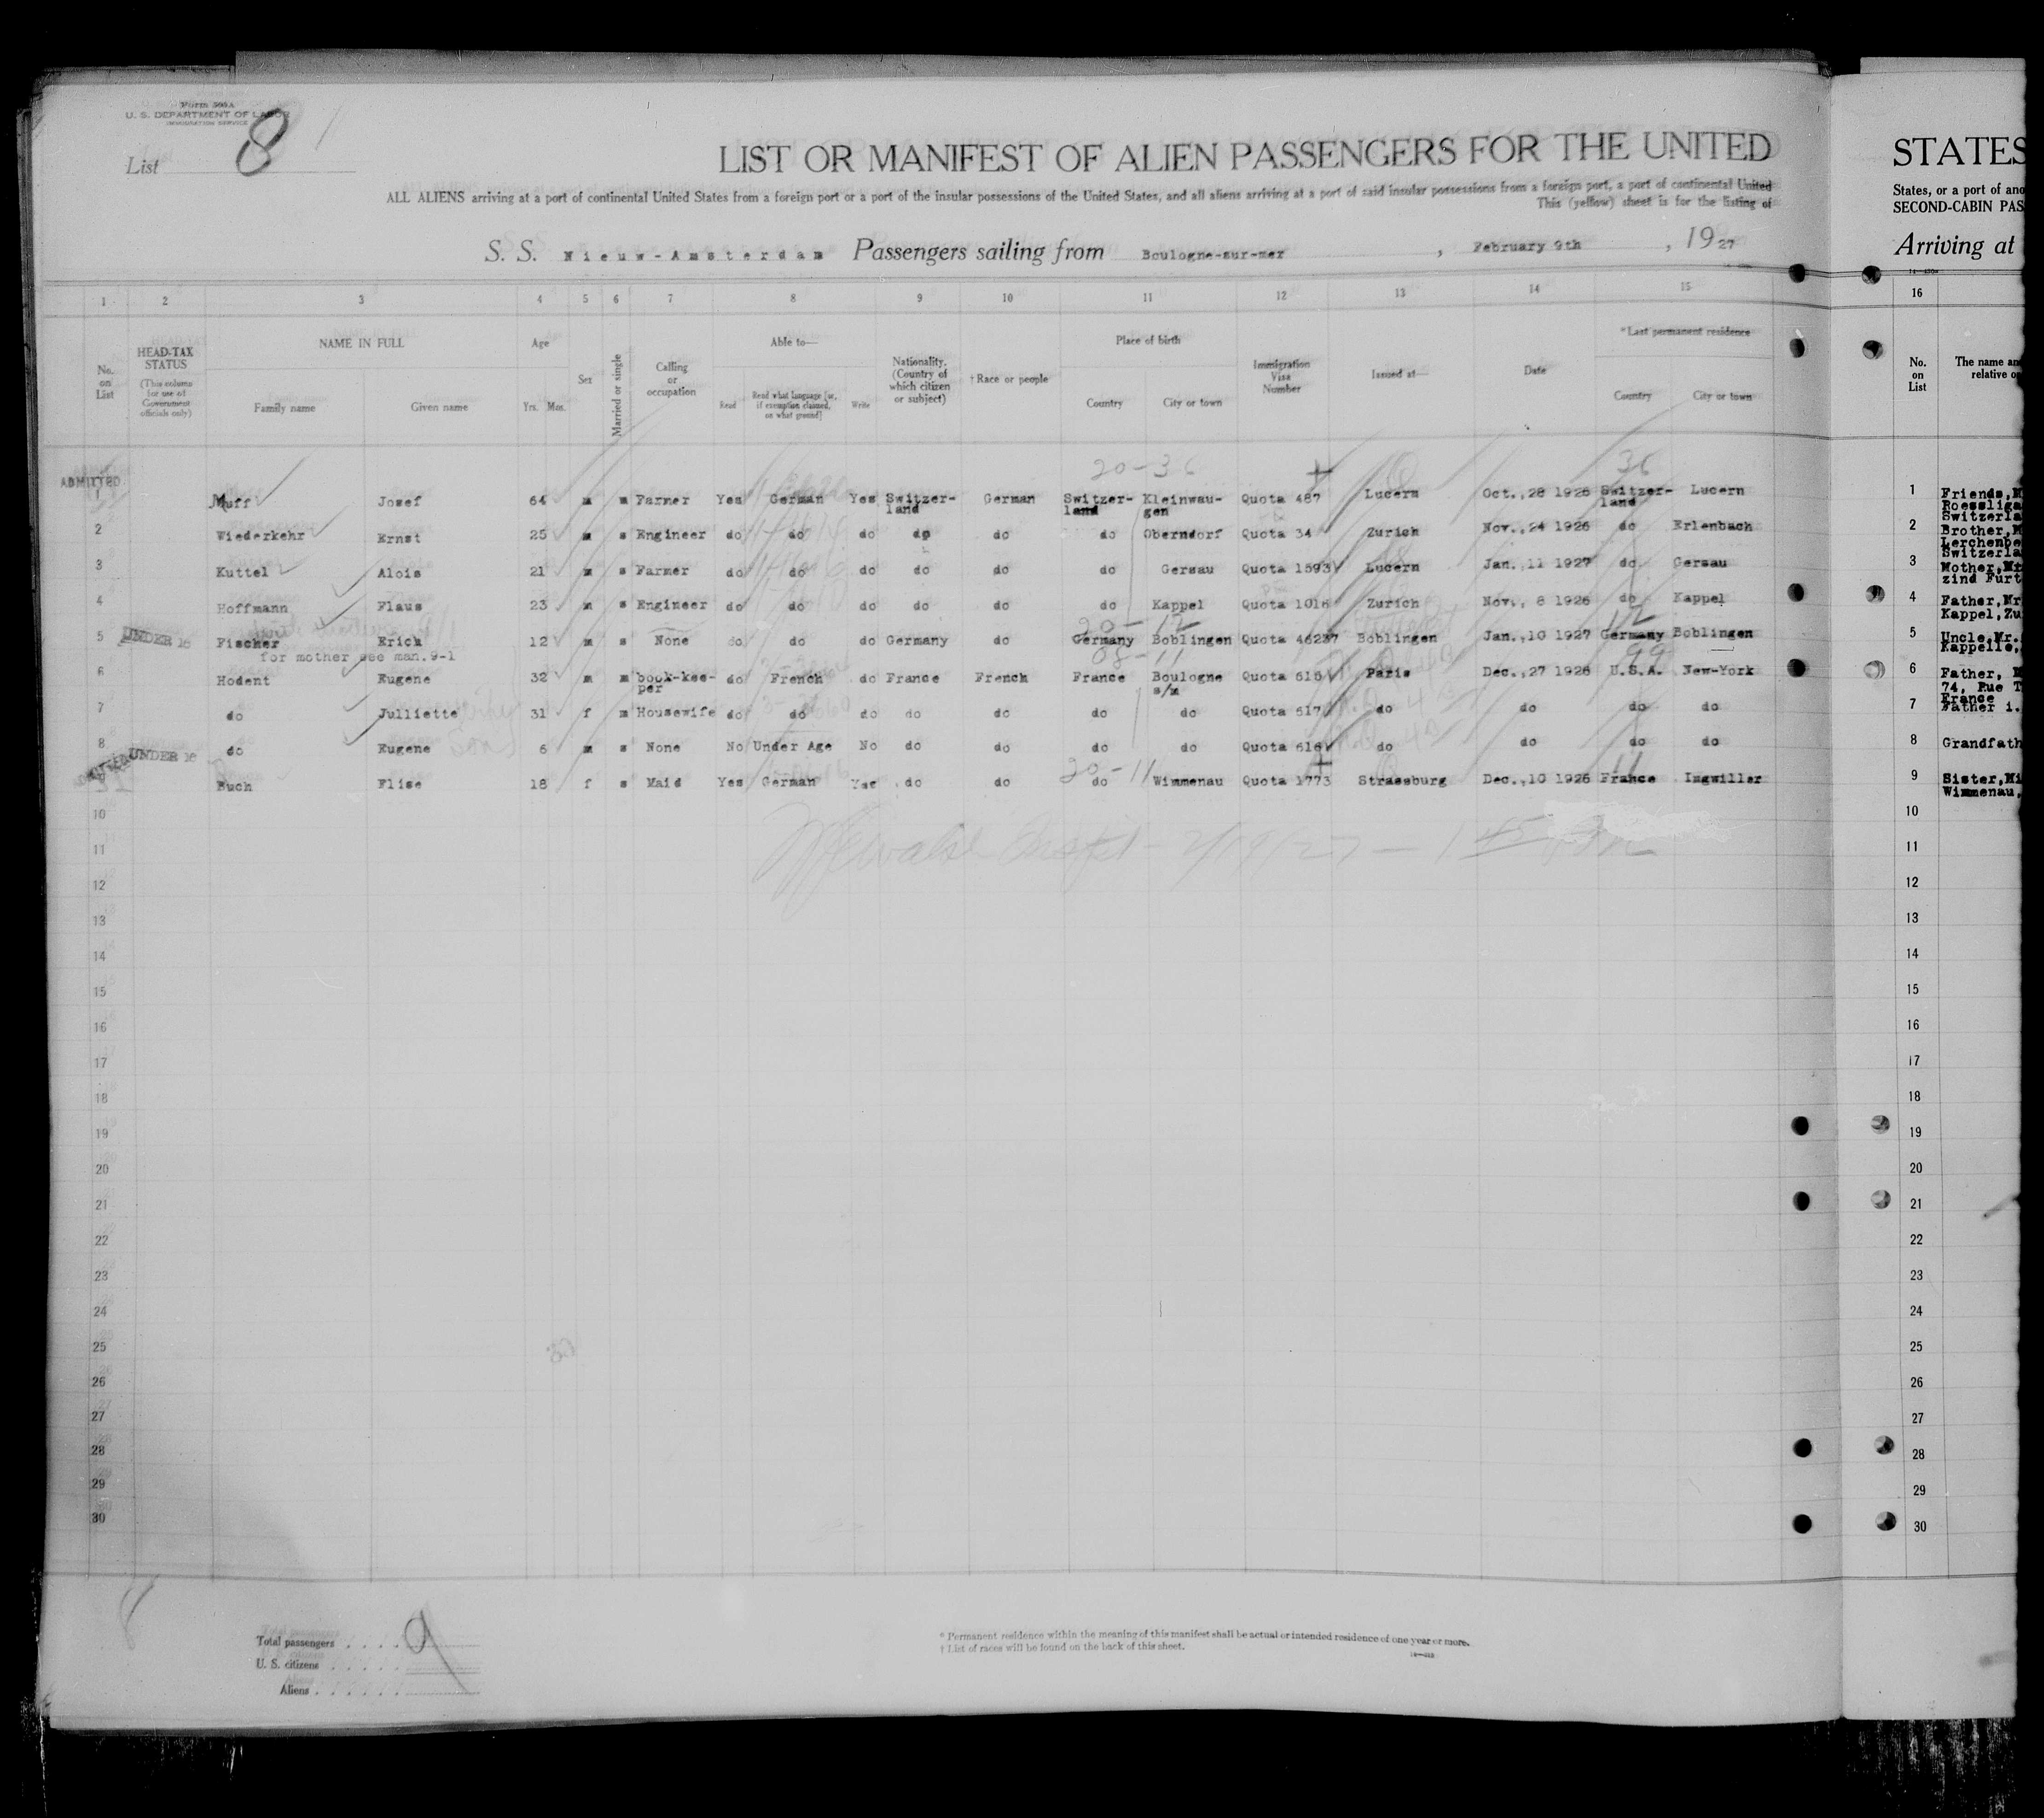 Form 500A
U. S. DEPARTMENT OF LABOR
IMMIGRATION SERVICE
List 8
LIST OR MANIFEST OF ALIEN PASSENGERS FOR THE UNITED
ALL ALIENS arriving at a port of continental United States from a foreign port or a port of the insular possessions of the United States, and all aliens arriving at a port of said insular possessions from a foreign port, a port of continental United
This (yellow) sheet is for the listing of
S. S. Nieuw-Amsterdam Passengers sailing from Boulogne-sur-mer, February 9th, 1927
1 2 3 4 5 6 7 8 9 10 11 12 13 14 15
No. on List
HEAD-TAX STATUS (This column for use of Government officials only)
NAME IN FULL
Family name Given name
Age
Yrs. Mos.
Sex
Married or single
Calling or occupation
Able to—
Read Read what language [or, if exemption claimed, on what ground] Write
Nationality. (Country of which citizen or subject)
†Race or people
Place of birth
Country City or town
Immigration Visa Number
Issued at—
Date
*Last permanent residence
Country City or town
20-36 36
ADMITTED
1 Muff Josef 64 m m Farmer Yes German Yes Switzer-land German Switzer-land Kleinwau-gen Quota 487 Lucern Oct.,28 1926 Switzer-land Lucern
2 Wiederkehr Ernst 25 m s Engineer do do do do do do Oberndorf Quota 34 Zurich Nov.,24 1926 do Erlenbach
3 Kuttel Alois 21 m s Farmer do do do do do do Gersau Quota 1593 Lucern Jan.,11 1927 do Gersau
4 Hoffmann Flaus 23 m s Engineer do do do do do do Kappel Quota 1016 Zurich Nov., 8 1926 do Kappel
20-12 12
5 UNDER 16 Fischer Erick 12 m s None do do do Germany do Germany Boblingen Quota 46237 Boblingen Jan.,10 1927 Germany Boblingen
for mother see man.9-1
08-11 99
6 Hodent Eugene 32 m m book-kee-per do French do France French France Boulogne s/m Quota 615 Paris Dec.,27 1926 U.S.A. New-York
7 do Julliette 31 f m Housewife do do do do do do do Quota 617 do do do do
8 UNDER 16 do Eugene 6 m s None No Under Age No do do do do Quota 616 do do do do
20-11 11
9 Buch Elise 18 f s Maid Yes German Yes do do do Wimmenau Quota 1773 Strassburg Dec.,10 1926 France Ingwiller
10
11
12
13
14
15
16
17
18
19
20
21
22
23
24
25
26
27
28
29
30
Total passengers . . . . 9
U. S. citizens . . . . .
Aliens . . . . . .
* Permanent residence within the meaning of this manifest shall be actual or intended residence of one year or more.
† List of races will be found on the back of this sheet.
STATES
States, or a port of ano
SECOND-CABIN PAS
Arriving at
16
No. on List
The name an
relative o
1 Friends,M
Roessliga
Switzerla
2 Brother,M
Lerchenbe
Switzerla
3 Mother,Mr
zind Furt
4 Father,Mr
Kappel,Zu
5 Uncle,Mr.
Kappelle,
6 Father, M
74, Rue T
France
7 Father i.
8 Grandfath
9 Sister,Mi
Wimmenau,
10
11
12
13
14
15
16
17
18
19
20
21
22
23
24
25
26
27
28
29
30